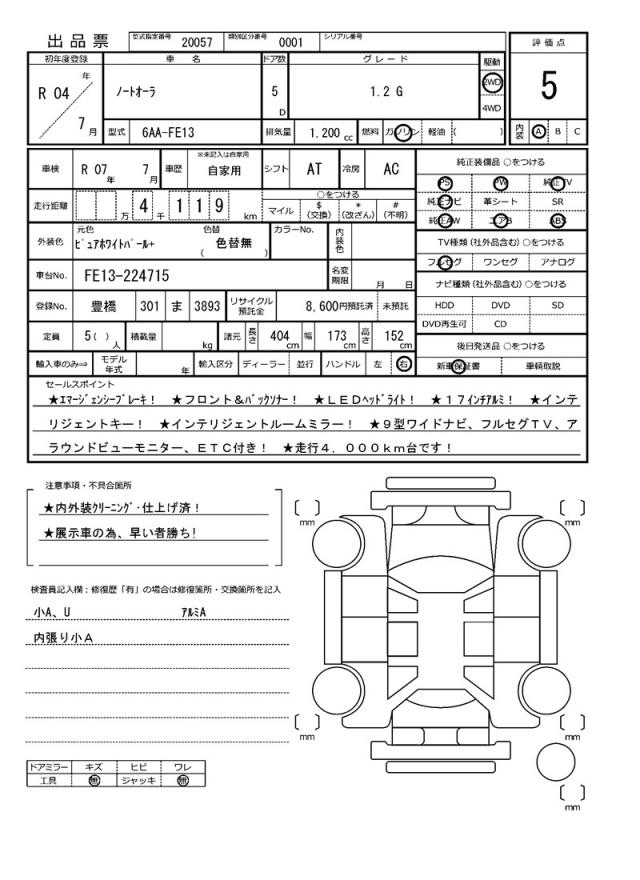 出品票 型式指定番号 20057 類別区分番号 0001 シリアル番号
初年度登録 車 名 ドア数 グレード 駆動 評価点
R 04 年 7 月 ノートオーラ 5 D 1.2 G 2WD 4WD 5
型式 6AA-FE13 排気量 1.200 cc 燃料 ガソリン 軽油 ( ) 内装 A B C
車検 R 07 年 7 月 車歴 ※未記入は自家用 自家用 シフト AT 冷房 AC 純正装備品 ○をつける
PS PW 純正TV
走行距離 万 4 千 1 1 9 km ○をつける 純正ナビ 革シート SR
マイル $ (交換) * (改ざん) # (不明) 純正AW エアB ABS
外装色 元色 ピュアホワイトパール+ 色替 ( 色替無 ) カラーNo. 内装色 TV種類 (社外品含む) ○をつける
フルセグ ワンセグ アナログ
車台No. FE13-224715 名変期限 月 日 ナビ種類 (社外品含む) ○をつける
登録No. 豊橋 301 ま 3893 リサイクル預託金 8,600円預託済 未預託 HDD DVD SD
DVD再生可 CD
定員 5 ( ) 人 積載量 kg 諸元 長さ 404 cm 幅 173 cm 高さ 152 cm 後日発送品 ○をつける
輸入車のみ⇒ モデル年式 年 輸入区分 ディーラー 並行 ハンドル 左 右 新車保証書 車輌取説
セールスポイント
★エマージェンシーブレーキ! ★フロント&バックソナー! ★LEDヘッドライト! ★17インチアルミ! ★インテ
リジェントキー! ★インテリジェントルームミラー! ★9型ワイドナビ、フルセグTV、ア
ラウンドビューモニター、ETC付き! ★走行4,000km台です!
注意事項・不具合箇所
★内外装クリーニング・仕上げ済!
★展示車の為、早い者勝ち!
検査員記入欄：修復歴「有」の場合は修復箇所・交換箇所を記入
小A、U アルミA
内張り小A
ドアミラー キズ ヒビ ワレ
工具 無 ジャッキ 無
mm
mm
mm
mm
mm